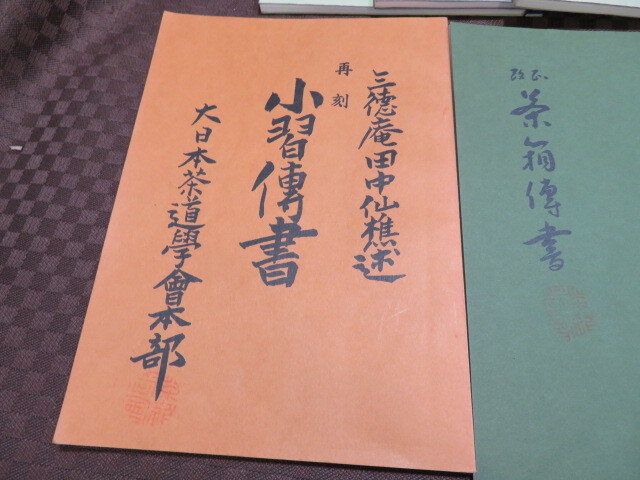 三徳庵田中仙樵述
再刻
小習傳書
大日本茶道學會本部
改正
茶箱傳書